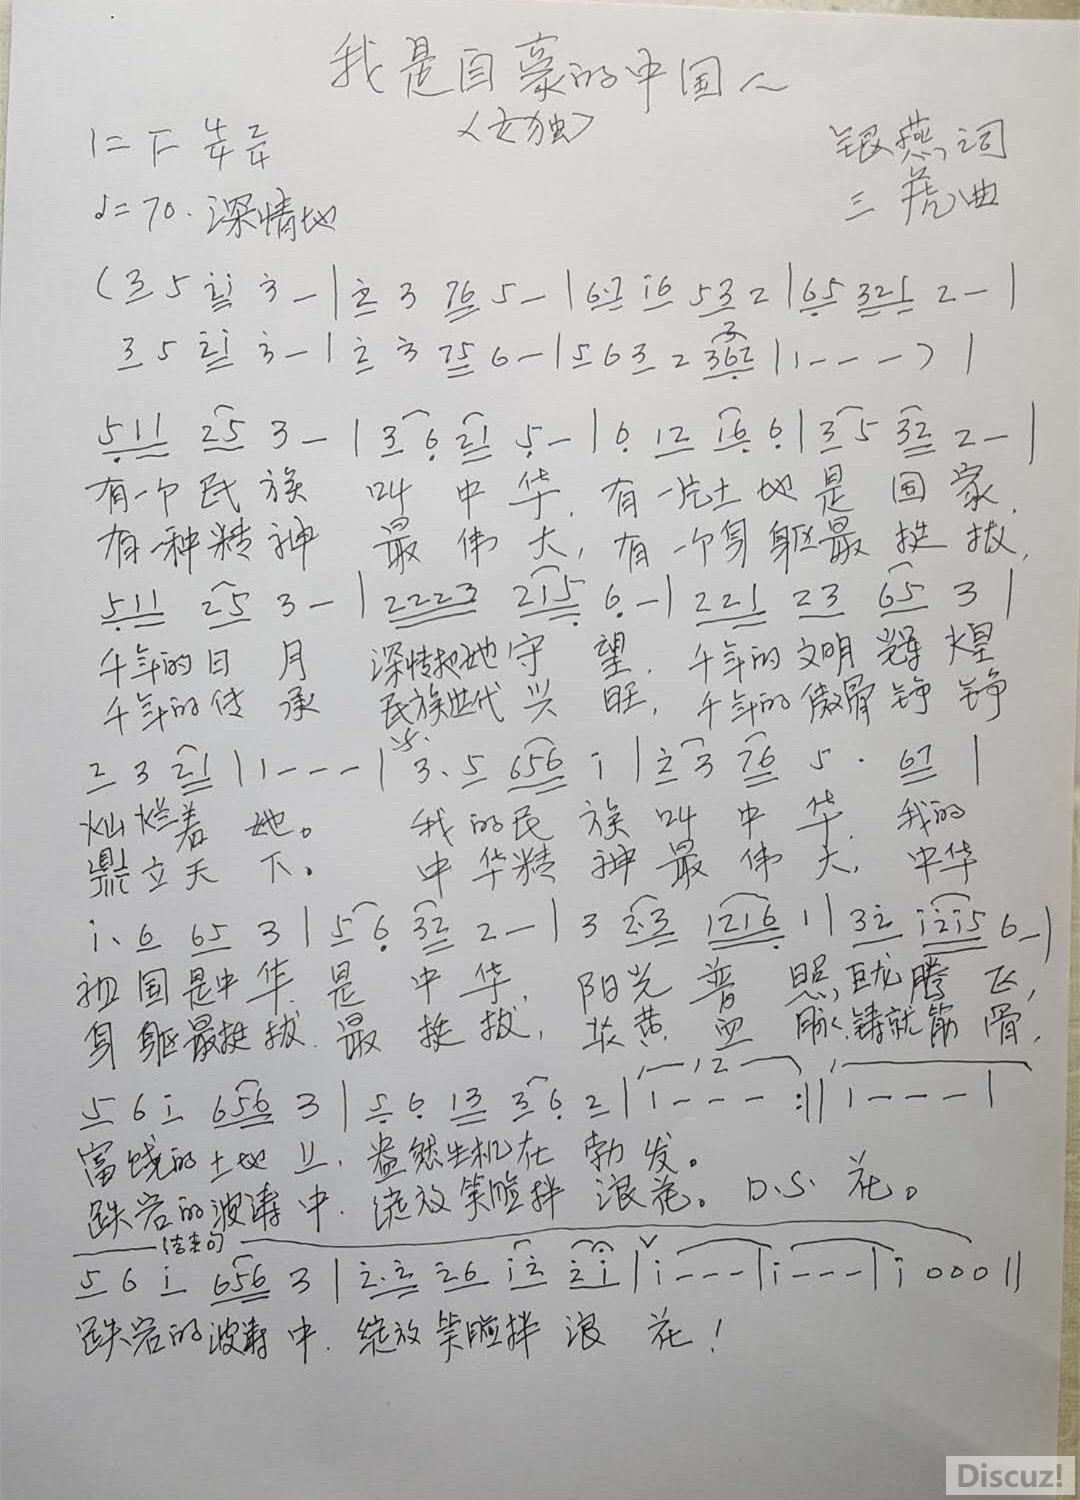 我是自豪的中国人
<女独>
1=F 4/4 2/4
银燕词
♩=70.深情地
三虎曲
(3 5 2̇1̇ 3̇ - | 2̇ 3 76 5 - | 67 1̇6 53 2 | 65 321 2 - |
3 5 2̇1̇ 3̇ - | 2̇ 3̇ 75 6 - | 5 6 3 2 362 | 1 - - - ) |
511 25 3 - | 3 6 21 5 - | 6 12 16 6 | 3 5 32 2 - |
有一个民族 叫中华,有一片土地是国家,
有一种精神 最伟大,有一个身躯最挺拔,
511 25 3 - | 2223 215 6 - | 221 23 65 3 |
千年的日月 深情把她守望,千年的文明辉煌
千年的传承 民族世代兴旺,千年的傲骨铮铮
2 3 21 | 1 - - - | 3. 5 656 1̇ | 2̇ 3 76 5 . 67 |
灿烂着她。 我的民族叫中华,我的
鼎立天下。 中华精神最伟大,中华
1̇. 6 65 3 | 5 6 32 2 - | 3 2.3 1216 1 | 32̇ 1̇2̇1̇5 6 - |
祖国是中华,是中华,阳光普照,巨龙腾飞,
身躯最挺拔,最挺拔,炎黄血脉,铸就筋骨,
5 6 1̇ 656 3 | 5 6 13 3 6 2 | 1 - - - :|| 1 - - - |
富饶的土地上,盎然生机在勃发。
跌宕的波涛中,绽放笑脸拌浪花。D.S. 花。
结束句
5 6 1̇ 656 3 | 2̇.2̇ 2̇6 1̇2̇ 2̇1̇ | 1̇ - - - | 1̇ - - - | 1̇ 0 0 0 ||
跌宕的波涛中,绽放笑脸拌浪花!
Discuz!